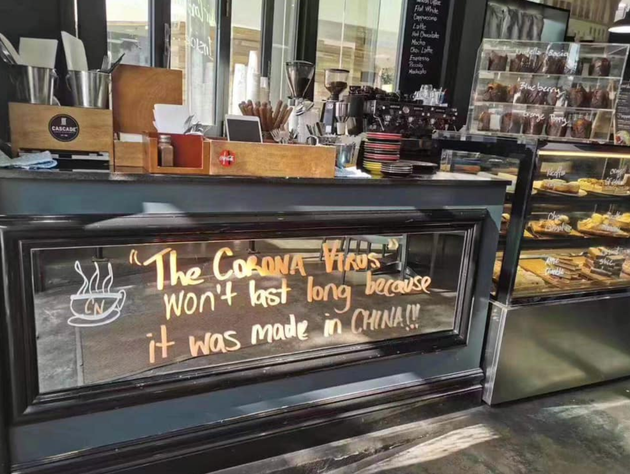 Flat White
Cappuccino
Latte
Hot Chocolate
Mocha
Chai Latte
Espresso
Blueberry
CASCADE
Coca-Cola
"The CORONA VIRUS"
won't last long because
it was made in CHINA!!!
CN